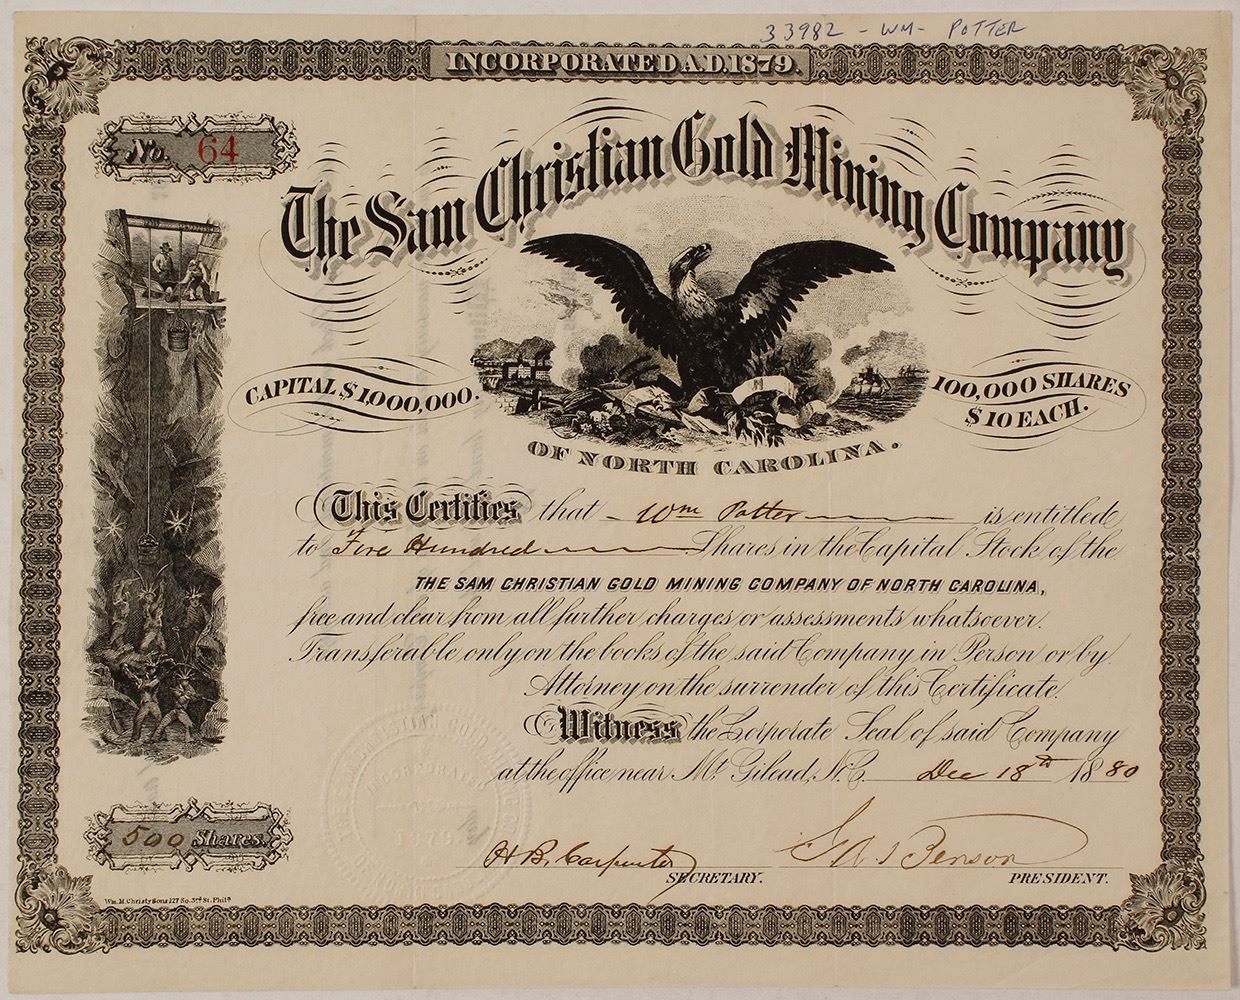 33982 - WM - POTTER
INCORPORATED A.D. 1879.
No. 64
The Sam Christian Gold Mining Company
CAPITAL $1,000,000.
100,000 SHARES
$10 EACH.
OF NORTH CAROLINA.
This Certifies that Wm Potter is entitled
to Five Hundred Shares in the Capital Stock of the
THE SAM CHRISTIAN GOLD MINING COMPANY OF NORTH CAROLINA,
free and clear from all further charges or assessments whatsoever.
Transferable only on the books of the said Company in Person or by
Attorney on the surrender of this Certificate.
Witness the Corporate Seal of said Company
at the office near Mt. Gilead, N.C. Dec 18th 1880
THE SAM CHRISTIAN GOLD MINING CO.
INCORPORATED
1879
OF NORTH CAROLINA
500 Shares.
H. B. Carpenter
SECRETARY.
Benson
PRESIDENT.
Wm. M. Christy Sons 127 So. 3rd St. Phila